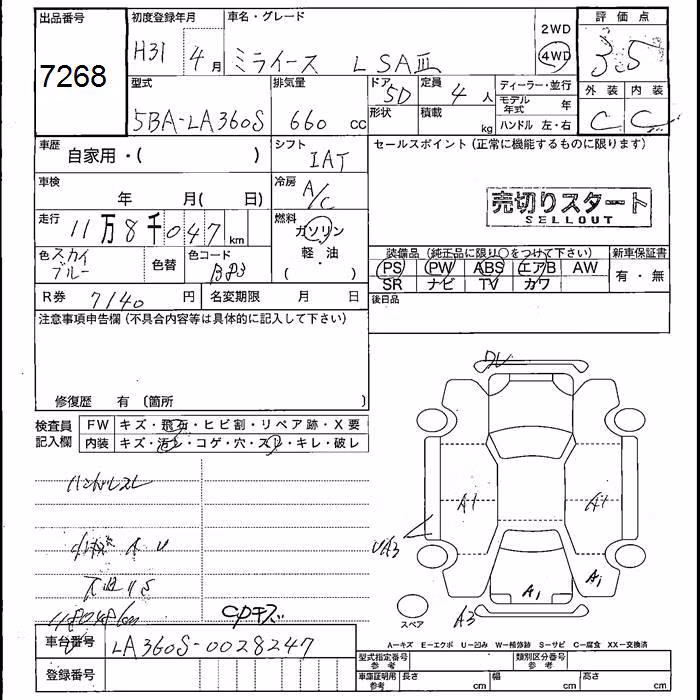 出品番号 初度登録年月 車名・グレード 評価点
7268 H31 4月 ミライース L SAⅢ 2WD 4WD 3.5
型式 排気量 ドア 定員 ディーラー・並行 外装 内装
5BA-LA360S 660 cc 5D 4人 モデル年式 年 C C
形状 積載 kg ハンドル 左・右
車歴 自家用・( ) シフト IAT セールスポイント (正常に機能するものに限ります)
車検 年 月( 日) 冷房 A/C
売切りスタート
SELLOUT
走行 11万8千047km 燃料 ガソリン 軽・油 ( ・ )
色 スカイブルー 色替 色コード
装備品 (純正品に限り○をつけて下さい) 新車保証書
PS PW ABS エアB AW 有・無
SR ナビ TV カワ
R券 7140円 名変期限 月 日 後日品
注意事項申告欄 (不具合内容等は具体的に記入して下さい)
修復歴 有 〔箇所 〕
検査員記入欄 FW キズ・飛石・ヒビ割・リペア跡・X要
内装 キズ・汚レ・コゲ・穴・スレ・キレ・破レ
ハンドルスレ
A1 A1
UA3
A1 A1
A3
CPキズ
スペア
車台番号 LA360S-0028247
A—キズ E—エクボ U—凹み W—補修跡 S—サビ C—腐食 XX—交換済
登録番号
型式指定番号 参考 類別区分番号 参考
車庫証明用 参考 長さ cm 幅 cm 高さ cm